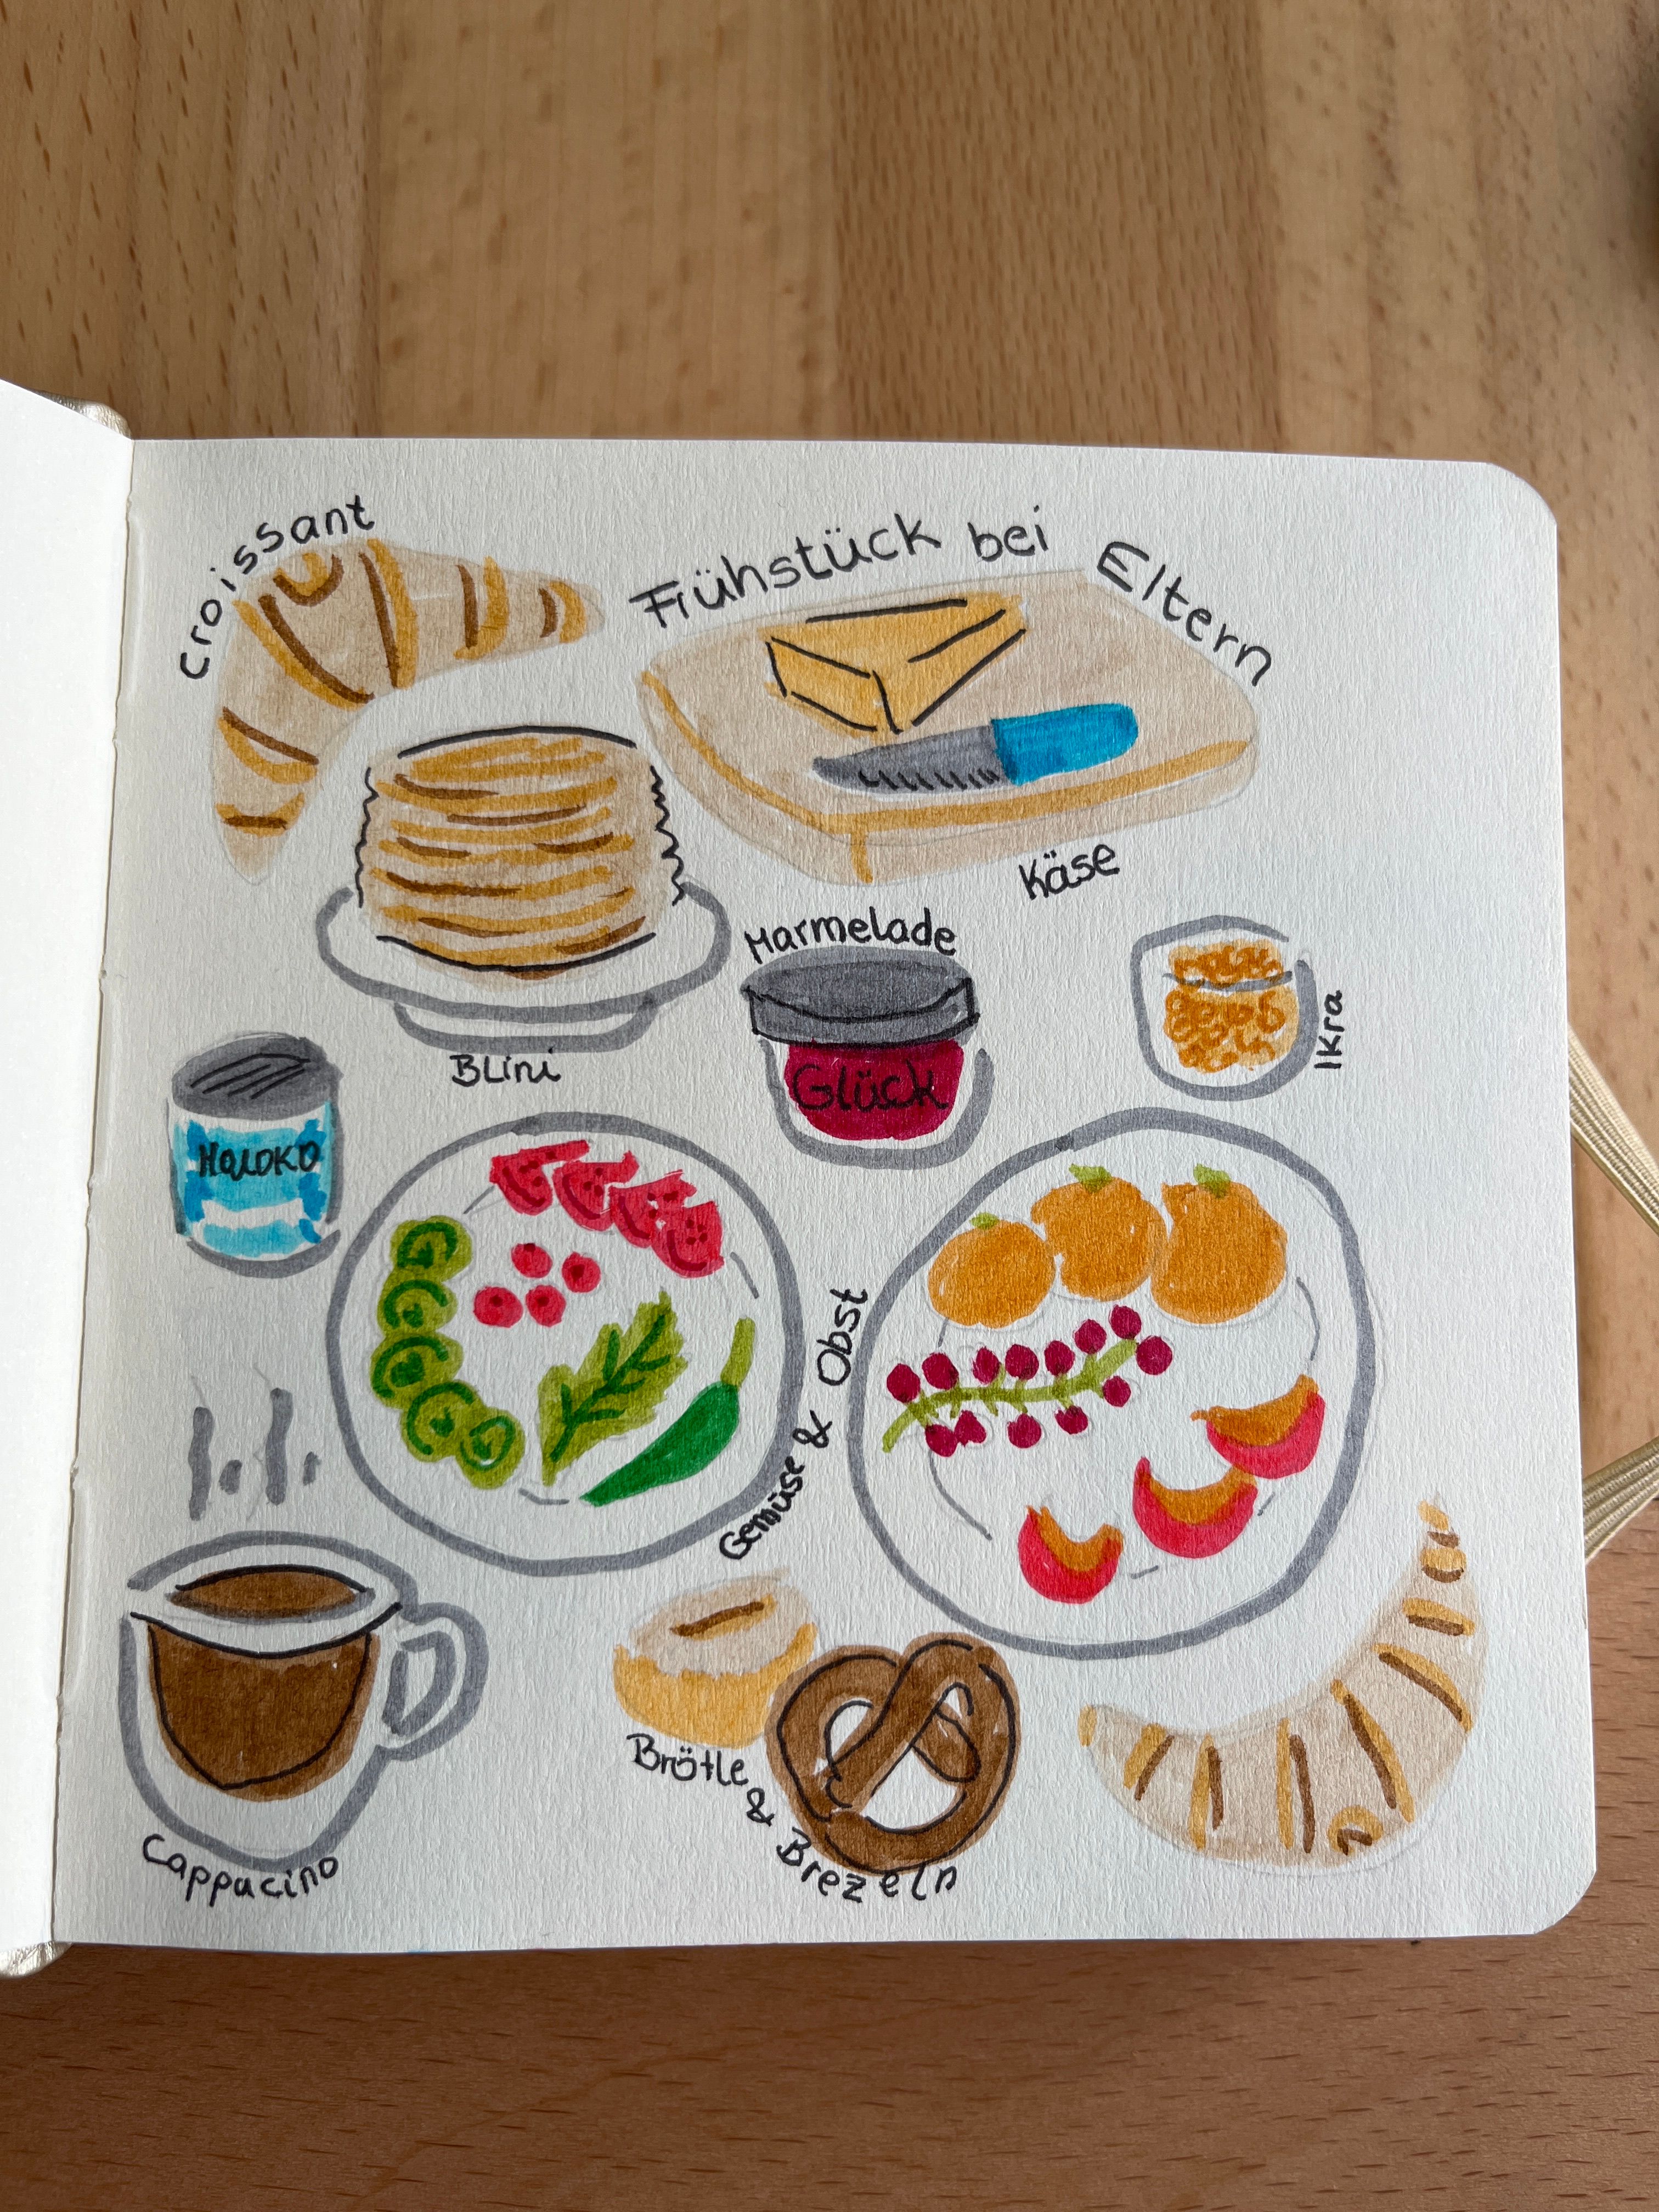 Croissant
Frühstück bei Eltern
Käse
Marmelade
Glück
Ikra
Blini
Молоко
Gemüse & Obst
Cappucino
Brötle & Brezeln